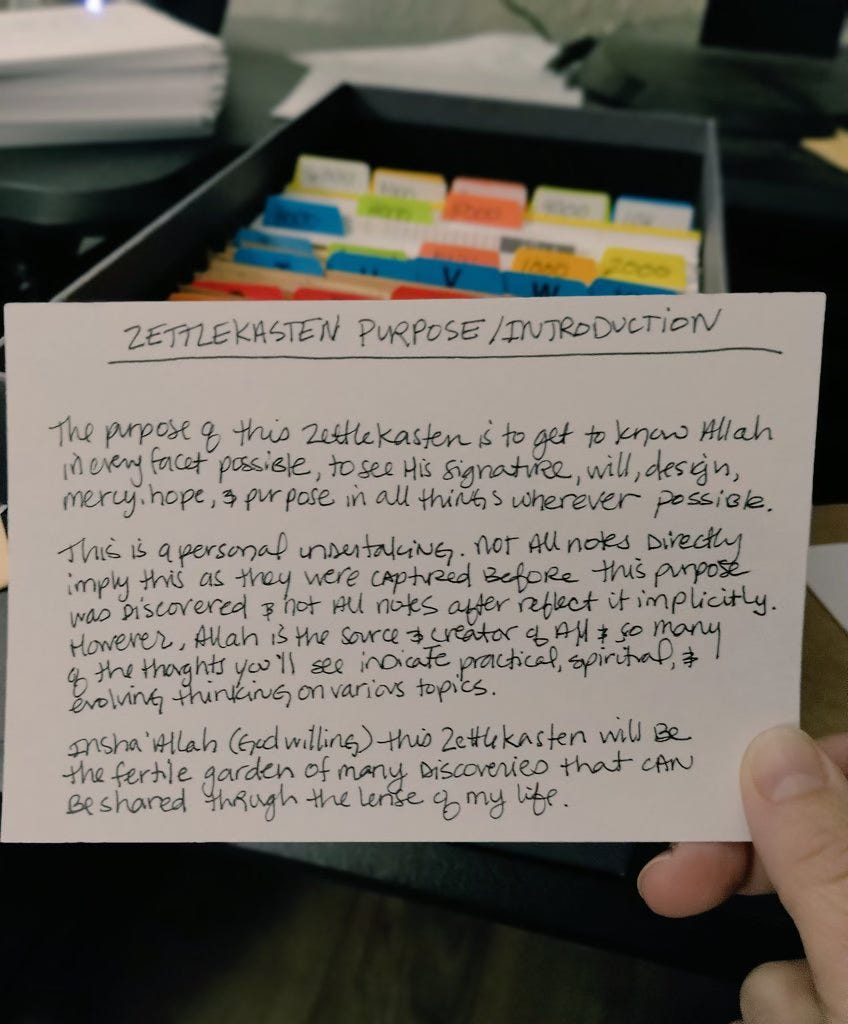 ZETTLEKASTEN PURPOSE/INTRODUCTION
The purpose of this Zettlekasten is to get to know Allah
in every facet possible, to see His signature, will, design,
mercy, hope, & purpose in all things wherever possible.
This is a personal undertaking. Not All notes Directly
imply this as they were captured Before this purpose
was Discovered & not All notes after reflect it implicitly.
However, Allah is the source & creator of All & so many
of the thoghts you'll see indicate practical, spiritual, &
evolving thinking on various topics.
Insha'Allah (God willing) this Zettlekasten will Be
the fertile garden of many Discoveries that CAN
Be shared through the lense of my life.
V
W
1000
2000